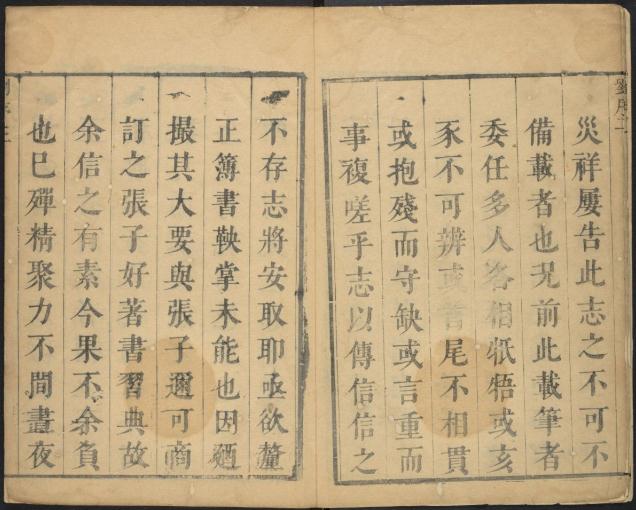 災祥屢告此志之不可不
備載者也況前此載筆者
委任多人各相牴牾或亥
豕不可辨或首尾不相貫
或抱殘而守缺或言重而
事複嗟乎志以傳信信之
不存志將安取耶亟欲釐
正簿書鞅掌未能也因廼
撮其大要與張子邇可商
訂之張子好著書習典故
余信之有素今果不余負
也已殫精聚力不間晝夜